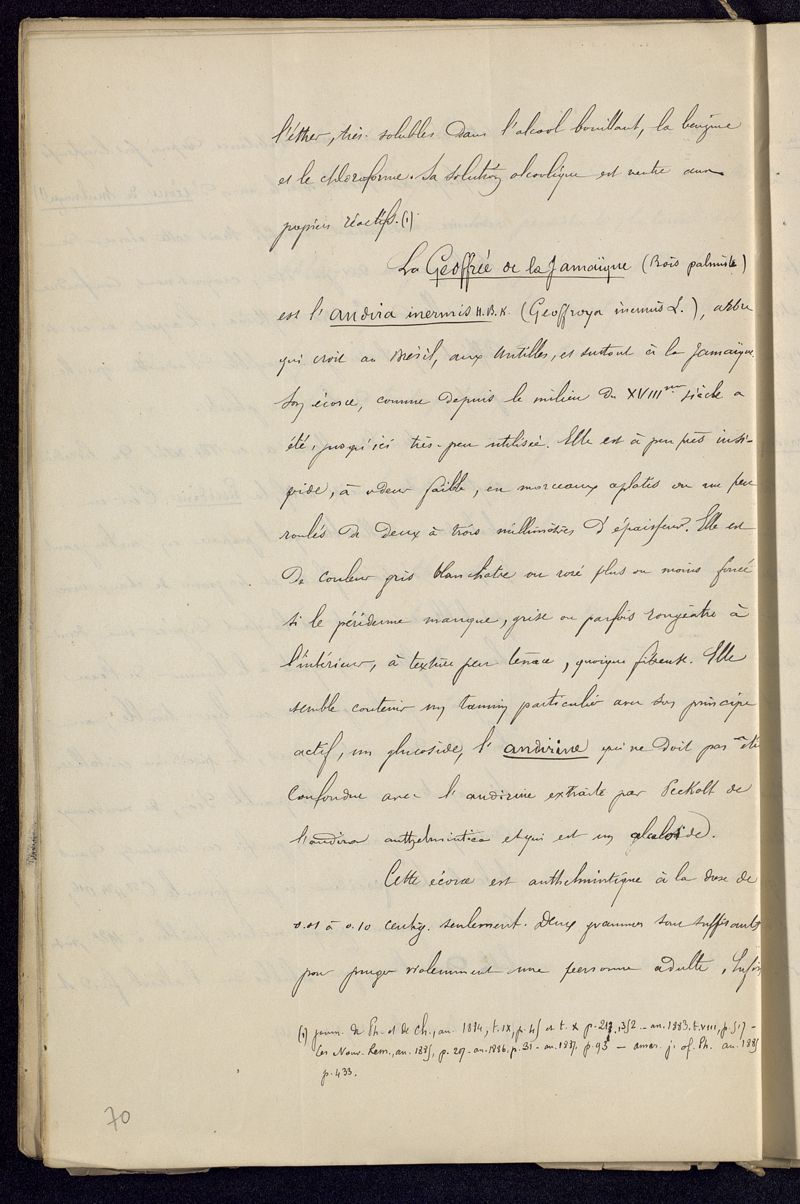 l'éther, très-solubles dans l'alcool bouillant, la benzine
et le chloroforme. Sa solution alcoolique est neutre aux
papiers réactifs. (1)
La Geoffrée de la Jamaïque (Bois palmiste)
est l'andira inermis H.B.K. (Geoffroya inermis L.), arbre
qui croit au Brésil, aux Antilles, et surtout à la Jamaïque.
Son écorce, connue depuis le milieu du XVIIIme siècle a
été, jusqu'ici très-peu utilisée. Elle est à peu près insi-
pide, à odeur faible, en morceaux aplatis ou un peu
roulés de deux à trois millimètres d'épaisseur. Elle est
de couleur gris blanchâtre ou rosé plus ou moins foncé
si le périderme manque, grise ou parfois rougeâtre à
l'intérieur, à texture peu tenace, quoique fibreuse. Elle
semble contenir un tannin particulier avec son principe
actif, un glucoside, l'andirine qui ne doit pas être
confondue avec l'andirine extraite par Peckolt de
l'andira anthelmintica et qui est un alcaloïde.
Cette écorce est anthelmintique à la dose de
0.01 à 0.10 centig. seulement. Deux grammes sont suffisants
pour purger violemment une personne adulte.
(1) journ. de Ph. et de Ch., an. 1884, t. IX, p. 45 et t. X p. 217, 352 - an. 1883. t. VIII, p. 517 -
les Nouv. Rem., an. 1885, p. 207 - an. 1886. p. 31 - an. 1887. p. 93 - amer. j. of. Ph. an. 1885
p. 433.
70